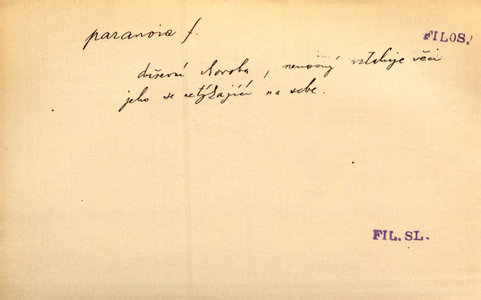 paranoia f.
FILOS.
duševní choroba, nemocný vztahuje věci
jeho se netýkající na sebe.
FIL. SL.